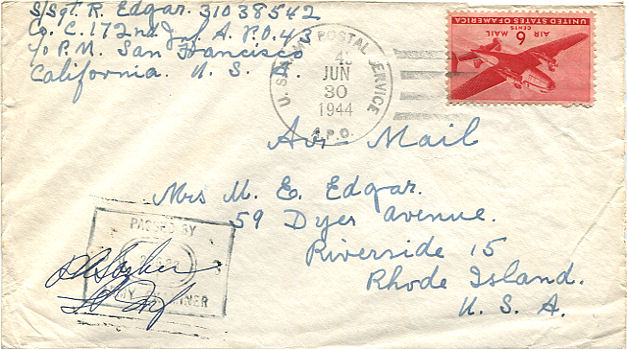 S/Sgt R. Edgar. 31038542
Co. C. 172nd Inf. A. P.O. 43
c/o P.M. San Francisco
California. U. S. A.
U.S. ARMY POSTAL SERVICE
43
JUN
30
1944
A.P.O.
UNITED STATES OF AMERICA
6
CENTS
AIR MAIL
Air Mail
Mrs M. E. Edgar.
59 Dyer avenue.
Riverside 15
Rhode Island.
U. S. A.
PASSED BY
ARMY EXAMINER